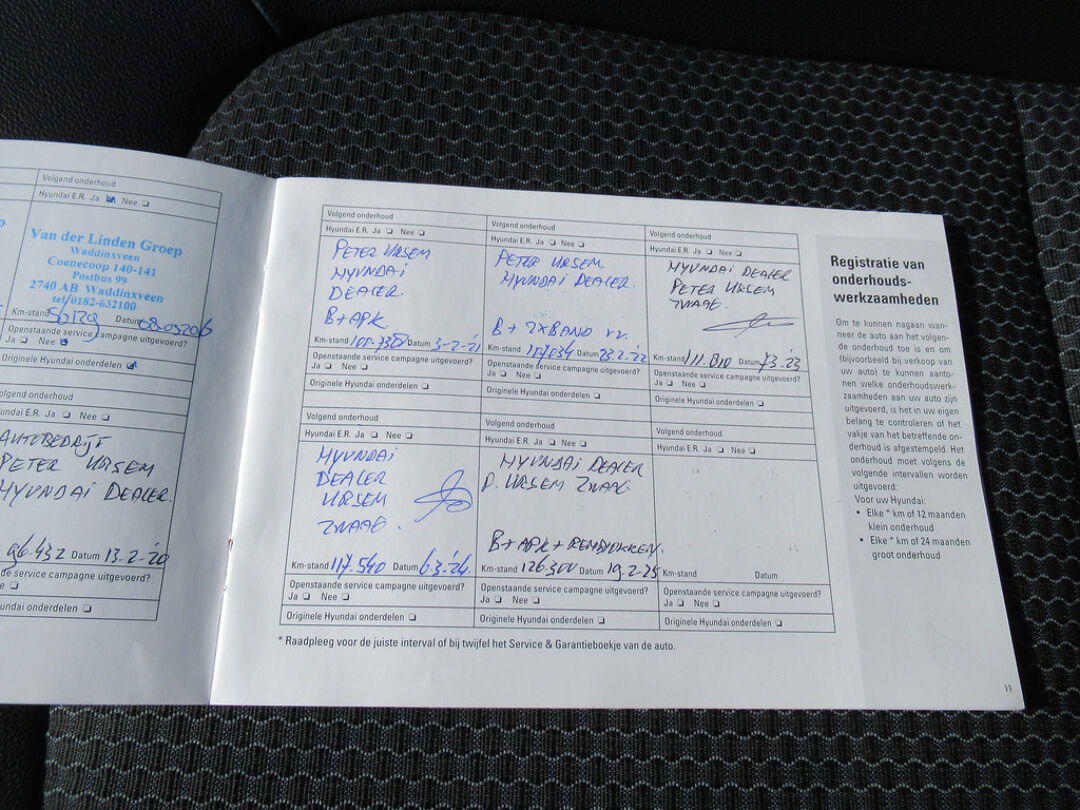 Volgend onderhoud
Hyundai E.R. Ja Nee
Van der Linden Groep
Waddinxveen
Coenecoop 140-141
Postbus 99
2740 AB Waddinxveen
tel/0182-632100
Km-stand Datum
Openstaande service campagne uitgevoerd?
Ja Nee
Originele Hyundai onderdelen
Volgend onderhoud
Hyundai E.R. Ja Nee
AUTOBEDRIJF
PETER URSEM
HYUNDAI DEALER.
96.432 Datum 13-2-'20
de service campagne uitgevoerd?
Nee
Hyundai onderdelen
Volgend onderhoud
Hyundai E.R. Ja Nee
PETER URSEM
HYUNDAI
DEALER.
B+APK.
Km-stand Datum 3-2-'21
Openstaande service campagne uitgevoerd?
Ja Nee
Originele Hyundai onderdelen
Volgend onderhoud
Hyundai E.R. Ja Nee
PETER URSEM.
HYUNDAI DEALER.
B + 2XBAND
Km-stand Datum
Openstaande service campagne uitgevoerd?
Ja Nee
Originele Hyundai onderdelen
Volgend onderhoud
Hyundai E.R. Ja Nee
HYUNDAI DEALER
PETER URSEM
ZWAAG.
Km-stand 111.810 Datum 7.3.'23
Openstaande service campagne uitgevoerd?
Ja Nee
Originele Hyundai onderdelen
Volgend onderhoud
Hyundai E.R. Ja Nee
HYUNDAI
DEALER
URSEM
ZWAAG.
Km-stand 117.540 Datum 6.3.'24
Openstaande service campagne uitgevoerd?
Ja Nee
Originele Hyundai onderdelen
Volgend onderhoud
Hyundai E.R. Ja Nee
HYUNDAI DEALER
P. URSEM ZWAAG
B+APK+REMBLOKKEN.
Km-stand 126.300 Datum 19.2-'25
Openstaande service campagne uitgevoerd?
Ja Nee
Originele Hyundai onderdelen
Volgend onderhoud
Hyundai E.R. Ja Nee
Km-stand Datum
Openstaande service campagne uitgevoerd?
Ja Nee
Originele Hyundai onderdelen
* Raadpleeg voor de juiste interval of bij twijfel het Service & Garantieboekje van de auto.
Registratie van
onderhouds-
werkzaamheden
Om te kunnen nagaan wan-
neer de auto aan het volgen-
de onderhoud toe is en om
(bijvoorbeeld bij verkoop van
uw auto) te kunnen aanto-
nen welke onderhoudswerk-
zaamheden aan uw auto zijn
uitgevoerd, is het in uw eigen
belang te controleren of het
vakje van het betreffende on-
derhoud is afgestempeld. Het
onderhoud moet volgens de
volgende intervallen worden
uitgevoerd:
Voor uw Hyundai:
• Elke * km of 12 maanden
klein onderhoud
• Elke * km of 24 maanden
groot onderhoud
11